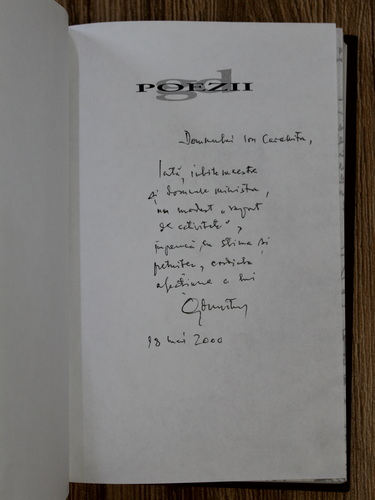 POEZII
gd
Domnului Ion Caramitru,
Iată, iubite maestre
și domnule ministru,
un modest „raport
de activitate”,
împreună cu stima și
prietenia, cordiala
afecțiune a lui
18 mai 2000